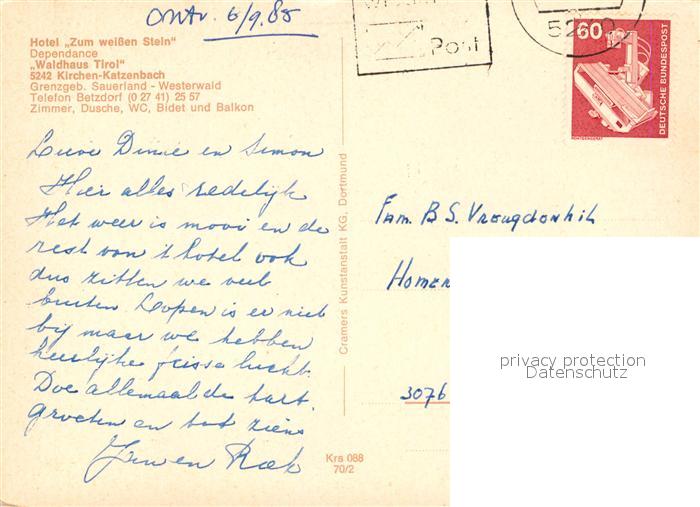 ontv. 6/9.85
Hotel „Zum weißen Stein"
Dependance
„Waldhaus Tirol"
5242 Kirchen-Katzenbach
Grenzgeb. Sauerland - Westerwald
Telefon Betzdorf (0 27 41) 25 57
Zimmer, Dusche, WC, Bidet und Balkon
Post
52
60
DEUTSCHE BUNDESPOST
RÖNTGENGERÄT
Lieve Dinie en Simon
Hier alles redelijk
Het weer is mooi en de
rest van 't hotel ook
dus zitten we veel
buiten. Lopen is er niet
bij maar we hebben
heerlijke frisse lucht.
Doe allemaal de hart.
groeten en tot ziens
en
Cramers Kunstanstalt KG, Dortmund
Krs 088
70/2
Fam. B S. Vreugdenhil
Homer
3076
privacy protection
Datenschutz